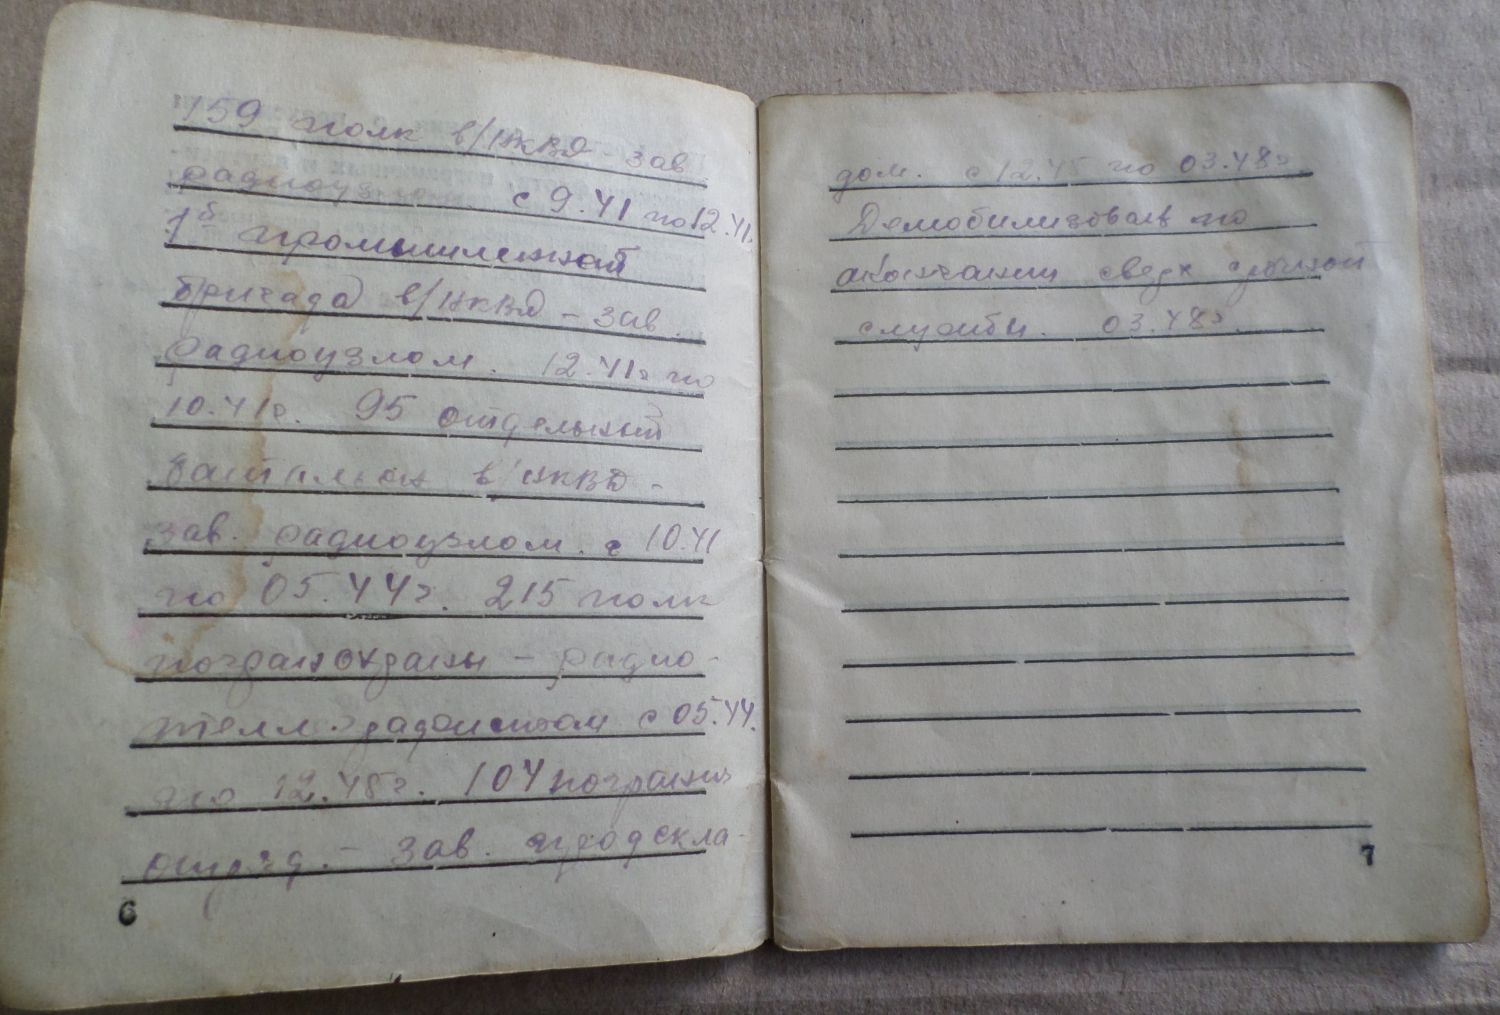 159 полк в/НКВД - зав
радиоузлом с 9.41 по 12.41.
1й промышленной
бригада в/НКВД - зав.
радиоузлом. 12.41г по
10.41г. 95 отдельный
батальон в/НКВД -
зав. радиоузлом. с 10.41
по 05.44г. 215 полк
погранохраны - радио-
с 05.44.
по 12.45г. 104 погранич
отряд. - зав. продскла-
6
дом. с 12.45 по 03.48г.
Демобилизован по
окончании сверх срочной
службы. 03.48г.
7